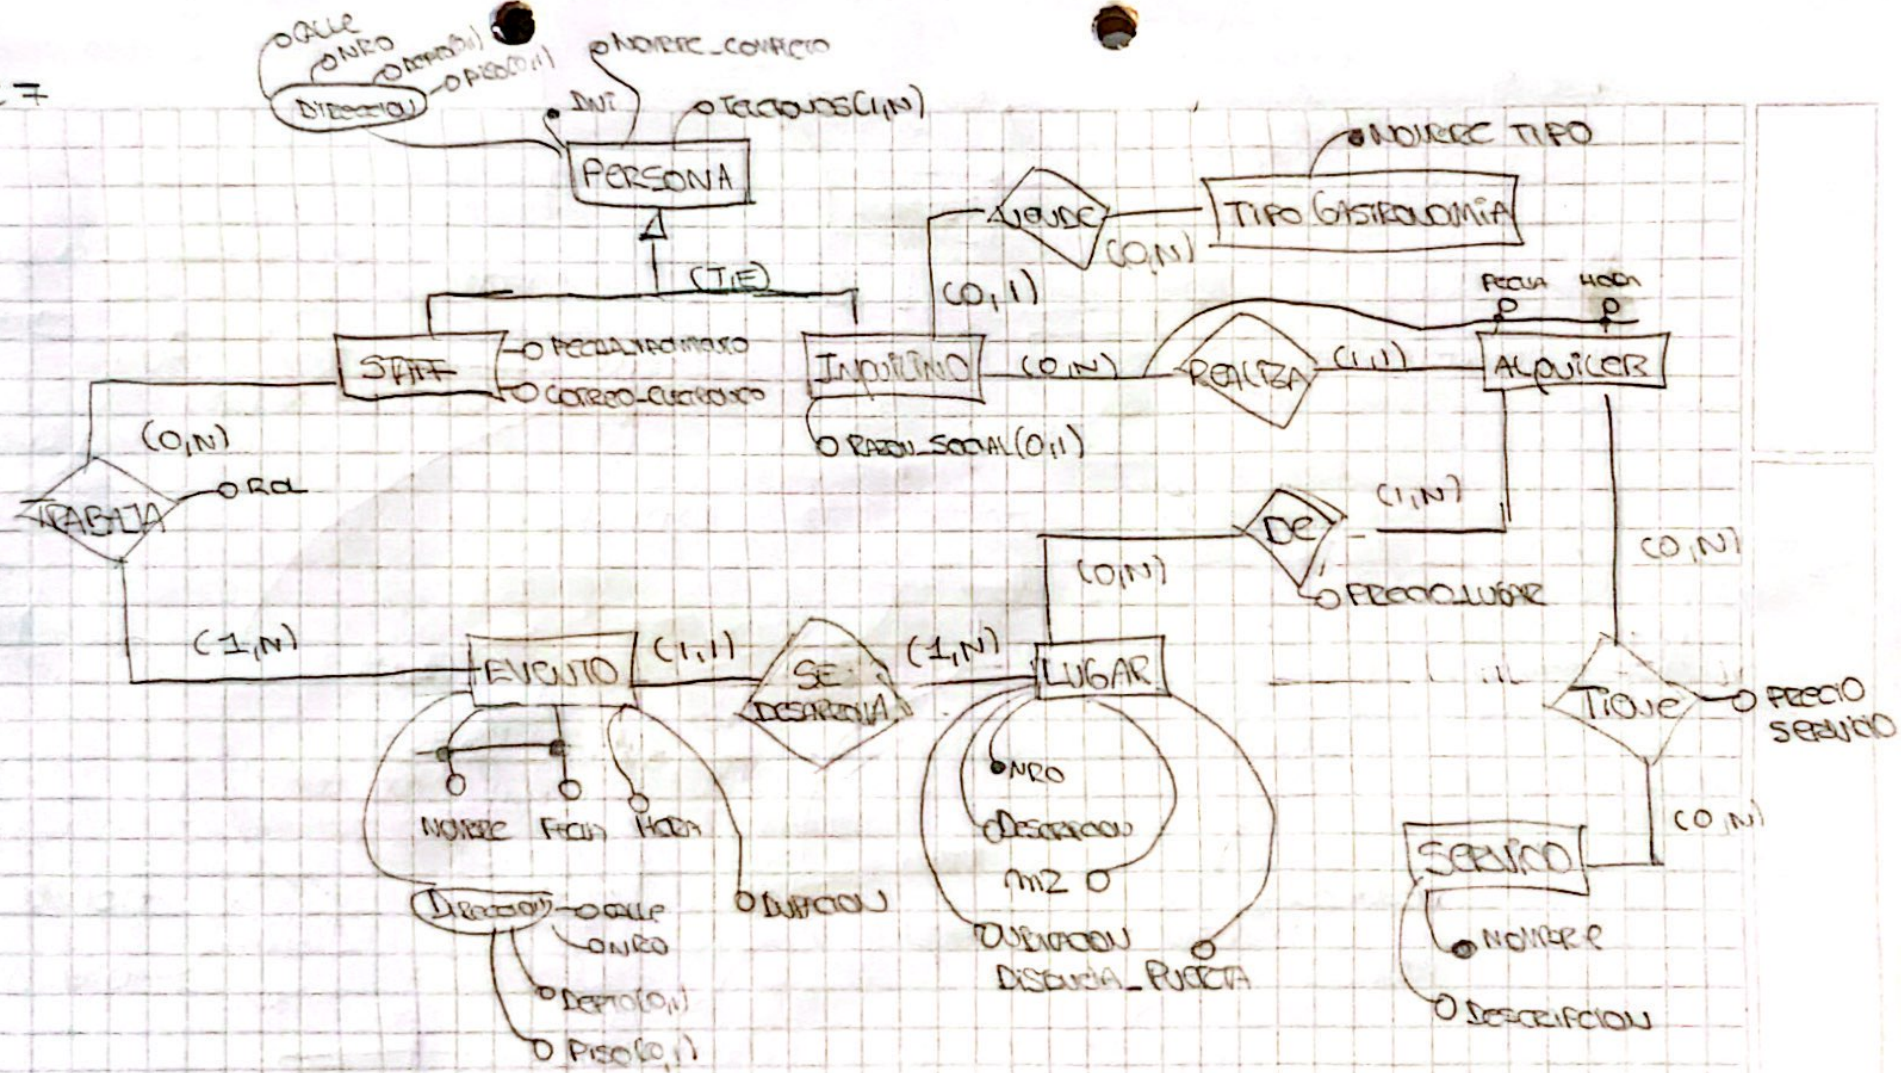 7
CALLE
NRO
DEPTO(0,1)
PISO(0,1)
DIRECCION
NOMBRE_COMPLETO
DNI
TELEFONOS(1,N)
PERSONA
NOMBRE TIPO
TIPO GASTRONOMIA
(0,N)
(0,1)
(T,E)
FECHA
HORA
STAFF
FECHA_NACIMIENTO
CORREO_ELECTRONICO
INQUILINO
(0,N)
REALIZA
(1,1)
ALQUILER
RAZON_SOCIAL(0,1)
(0,N)
ROL
TRABAJA
(1,N)
DE
(0,N)
PRECIO_LUGAR
(0,N)
(1,N)
EVENTO
(1,1)
SE
DESARROLLA
(1,N)
LUGAR
TIENE
PRECIO
SERVICIO
NRO
NOMBRE
FECHA
HORA
DESCRIPCION
m2
(0,N)
SERVICIO
DIRECCION
CALLE
NRO
DURACION
UBICACION
DISTANCIA_PUERTA
NOMBRE
DEPTO(0,1)
PISO(0,1)
DESCRIPCION